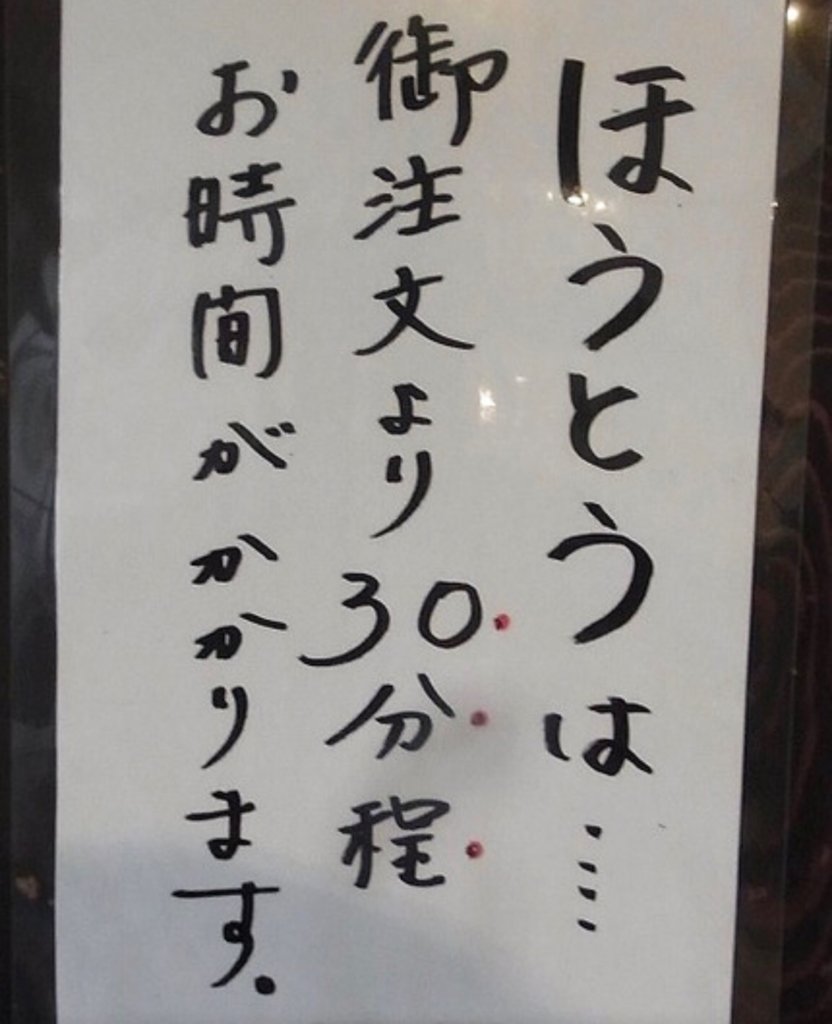 ほうとうは…
御注文より30分程
お時間がかかります.